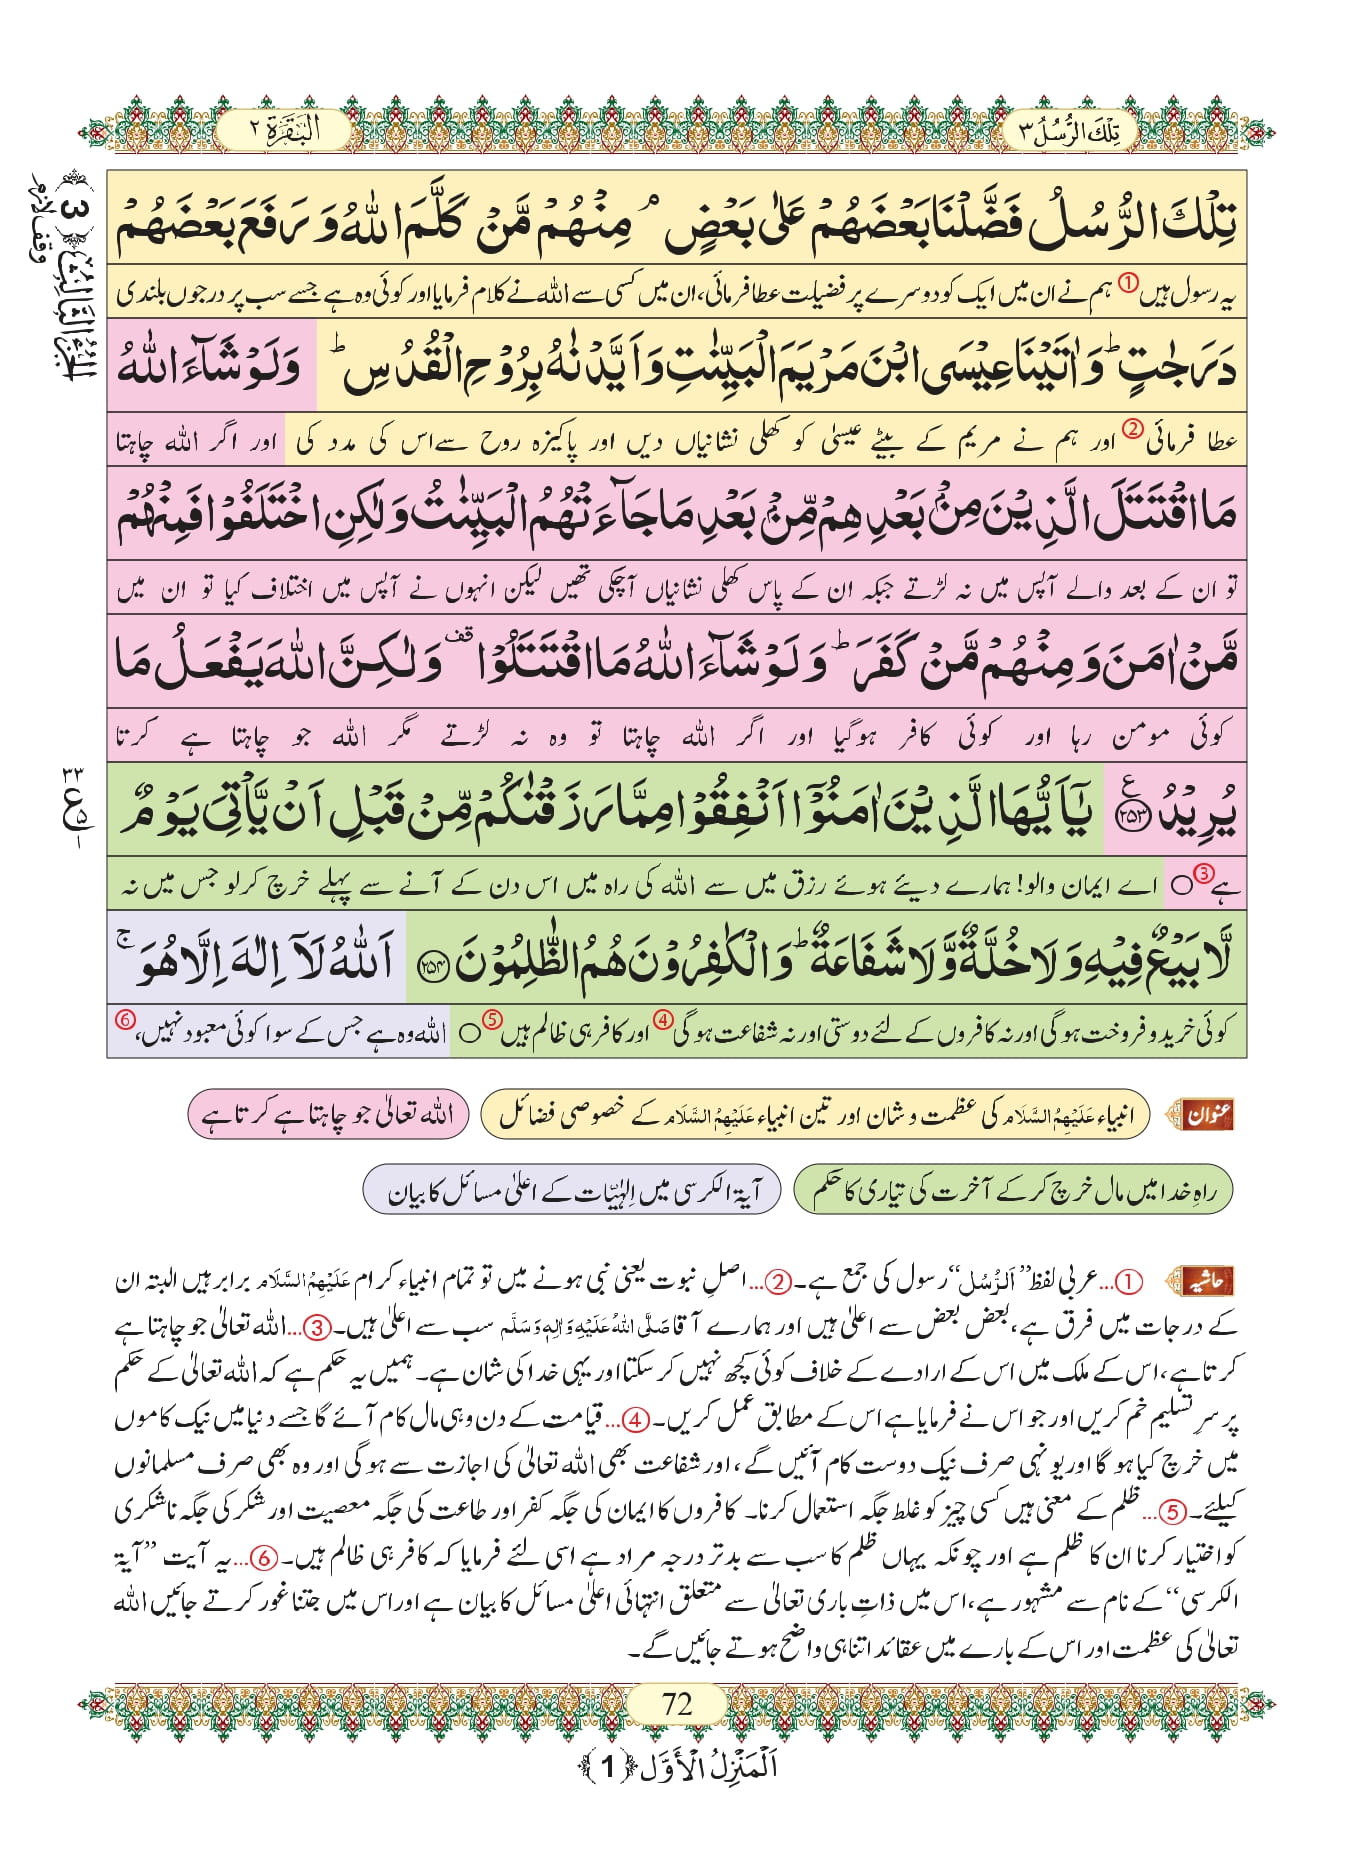 تِلْكَ الرُّسُلُ ٣
اَلْبَقَرَة ٢
اَلْجُزْءُ الثَّالِثُ ﴿3﴾
وقف لازم
تِلْكَ الرُّسُلُ فَضَّلْنَا بَعْضَهُمْ عَلٰى بَعْضٍ ۘ مِنْهُمْ مَّنْ كَلَّمَ اللّٰهُ وَ رَفَعَ بَعْضَهُمْ
یہ رسول ہیں ① ہم نے ان میں ایک کو دوسرے پر فضیلت عطا فرمائی، ان میں کسی سے اللہ نے کلام فرمایا اور کوئی وہ ہے جسے سب پر درجوں بلندی
دَرَجٰتٍ ؕ وَ اٰتَيْنَا عِيْسَى ابْنَ مَرْيَمَ الْبَيِّنٰتِ وَ اَيَّدْنٰهُ بِرُوْحِ الْقُدُسِ ؕ وَ لَوْ شَآءَ اللّٰهُ
عطا فرمائی ② اور ہم نے مریم کے بیٹے عیسیٰ کو کھلی نشانیاں دیں اور پاکیزہ روح سے اس کی مدد کی اور اگر اللہ چاہتا
مَا اقْتَتَلَ الَّذِيْنَ مِنْۢ بَعْدِهِمْ مِّنْۢ بَعْدِ مَا جَآءَتْهُمُ الْبَيِّنٰتُ وَ لٰكِنِ اخْتَلَفُوْا فَمِنْهُمْ
تو ان کے بعد والے آپس میں نہ لڑتے جبکہ ان کے پاس کھلی نشانیاں آچکی تھیں لیکن انہوں نے آپس میں اختلاف کیا تو ان میں
مَّنْ اٰمَنَ وَ مِنْهُمْ مَّنْ كَفَرَ ؕ وَ لَوْ شَآءَ اللّٰهُ مَا اقْتَتَلُوْا قف وَ لٰكِنَّ اللّٰهَ يَفْعَلُ مَا
کوئی مومن رہا اور کوئی کافر ہوگیا اور اگر اللہ چاہتا تو وہ نہ لڑتے مگر اللہ جو چاہتا ہے کرتا
٣٣
ع ۵
١
يُرِيْدُ ﴿۲۵۳﴾ ع يٰۤاَيُّهَا الَّذِيْنَ اٰمَنُوْۤا اَنْفِقُوْا مِمَّا رَزَقْنٰكُمْ مِّنْ قَبْلِ اَنْ يَّاْتِيَ يَوْمٌ
ہے ③ ○ اے ایمان والو! ہمارے دیئے ہوئے رزق میں سے اللہ کی راہ میں اس دن کے آنے سے پہلے خرچ کرلو جس میں نہ
لَّا بَيْعٌ فِيْهِ وَ لَا خُلَّةٌ وَّ لَا شَفَاعَةٌ ؕ وَ الْكٰفِرُوْنَ هُمُ الظّٰلِمُوْنَ ﴿۲۵۴﴾ اَللّٰهُ لَاۤ اِلٰهَ اِلَّا هُوَ ۚ
کوئی خرید و فروخت ہوگی اور نہ کافروں کے لئے دوستی اور نہ شفاعت ہوگی ④ اور کافر ہی ظالم ہیں ⑤ ○ اللہ وہ ہے جس کے سوا کوئی معبود نہیں، ⑥
عنوان انبیاء عَلَیْہِمُ السَّلَام کی عظمت و شان اور تین انبیاء عَلَیْہِمُ السَّلَام کے خصوصی فضائل اللہ تعالیٰ جو چاہتا ہے کرتا ہے
راہِ خدا میں مال خرچ کرکے آخرت کی تیاری کا حکم آیۃ الکرسی میں اِلٰہِیّات کے اعلیٰ مسائل کا بیان
حاشیہ ①…عربی لفظ ”اَلرُّسُل“ رسول کی جمع ہے۔ ②…اصلِ نبوت یعنی نبی ہونے میں تو تمام انبیاء کرام عَلَیْہِمُ السَّلَام برابر ہیں البتہ ان
کے درجات میں فرق ہے، بعض بعض سے اعلیٰ ہیں اور ہمارے آقا صَلَّی اللہُ عَلَیْہِ وَاٰلِہٖ وَسَلَّم سب سے اعلیٰ ہیں۔ ③…اللہ تعالیٰ جو چاہتا ہے
کرتا ہے، اس کے ملک میں اس کے ارادے کے خلاف کوئی کچھ نہیں کر سکتا اور یہی خدا کی شان ہے۔ ہمیں یہ حکم ہے کہ اللہ تعالیٰ کے حکم
پر سرِ تسلیم خم کریں اور جو اس نے فرمایا ہے اس کے مطابق عمل کریں۔ ④…قیامت کے دن وہی مال کام آئے گا جسے دنیا میں نیک کاموں
میں خرچ کیا ہوگا اور یونہی صرف نیک دوست کام آئیں گے، اور شفاعت بھی اللہ تعالیٰ کی اجازت سے ہوگی اور وہ بھی صرف مسلمانوں
کیلئے۔ ⑤…ظلم کے معنی ہیں کسی چیز کو غلط جگہ استعمال کرنا۔ کافروں کا ایمان کی جگہ کفر اور طاعت کی جگہ معصیت اور شکر کی جگہ ناشکری
کو اختیار کرنا ان کا ظلم ہے اور چونکہ یہاں ظلم کا سب سے بدتر درجہ مراد ہے اسی لئے فرمایا کہ کافر ہی ظالم ہیں۔ ⑥…یہ آیت ”آیۃ
الکرسی“ کے نام سے مشہور ہے، اس میں ذاتِ باری تعالیٰ سے متعلق انتہائی اعلیٰ مسائل کا بیان ہے اور اس میں جتنا غور کرتے جائیں اللہ
تعالیٰ کی عظمت اور اس کے بارے میں عقائد اتنا ہی واضح ہوتے جائیں گے۔
72
اَلْمَنْزِلُ الْاَوَّل ﴿1﴾